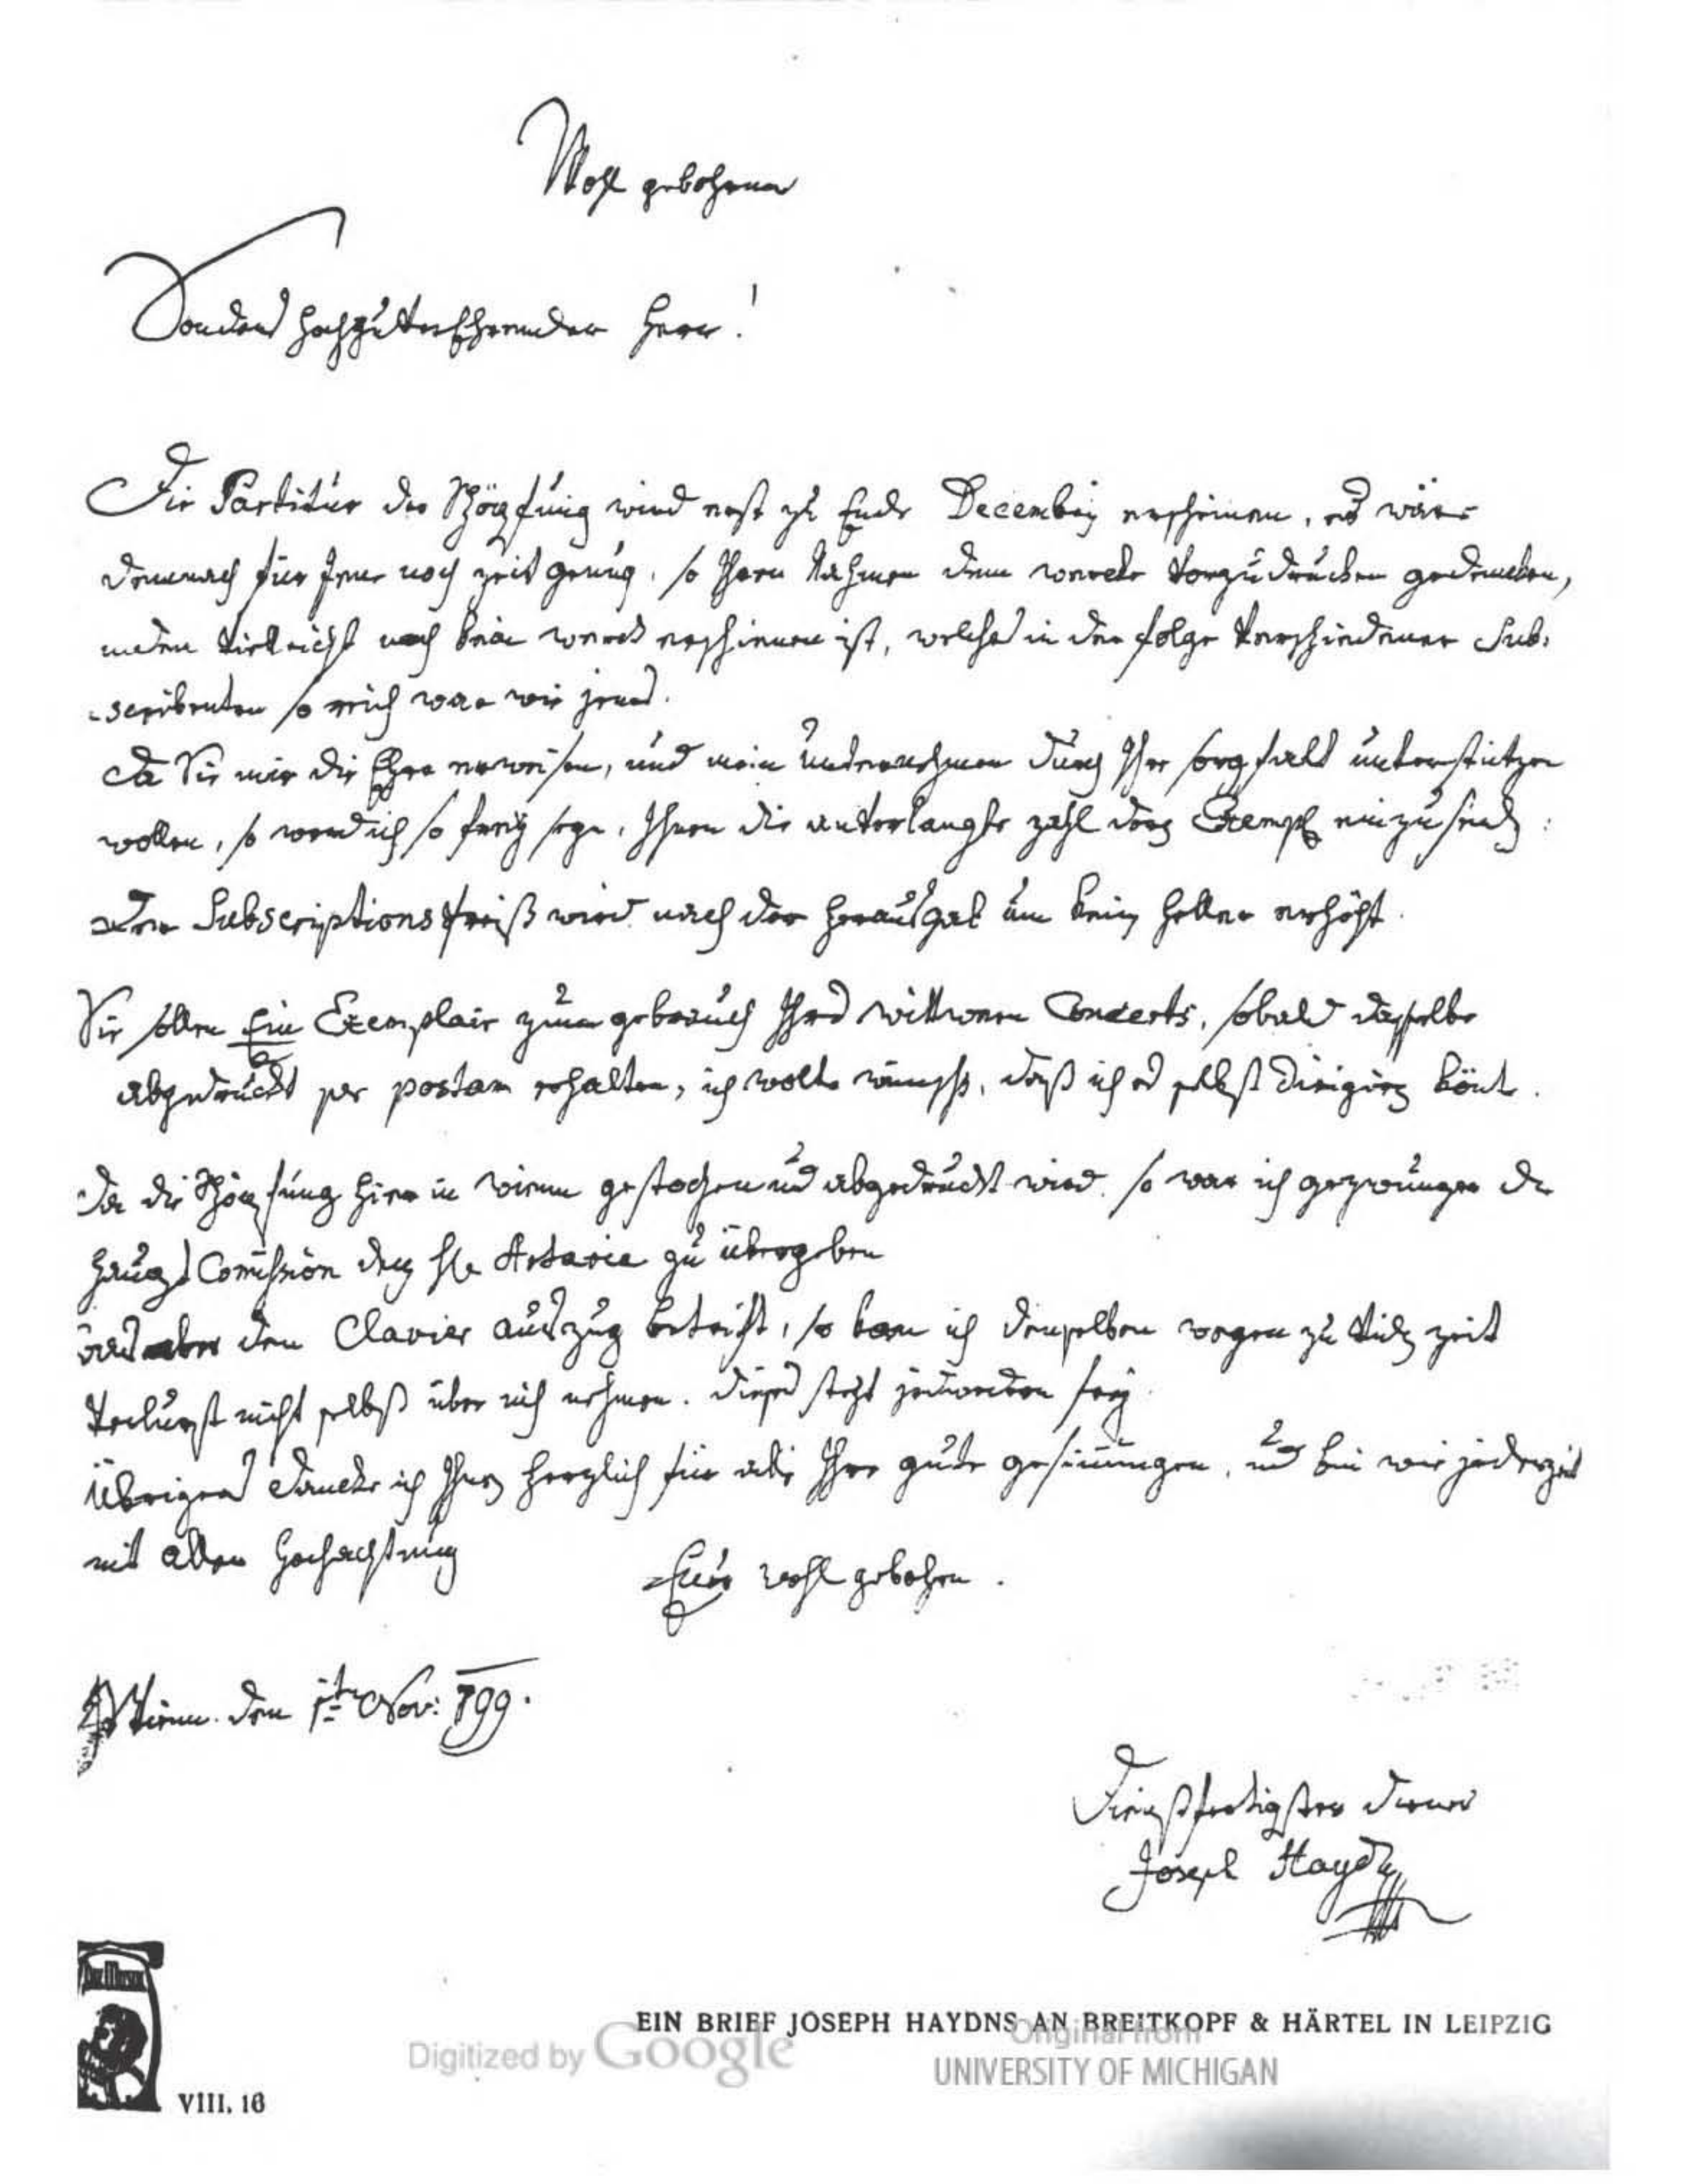 Wohl gebohrner
Sonders HochzuverEhrender Herr!
Die Partitur der Schöpfung wird erst zu Ende Decembris erscheinen, es wäre
demnach für Jene noch zeit genug, so Ihren Nahmen dem wercke vorzudrucken gedencken,
indem vielleicht noch kein werck erschienen ist, welches in der folge verschiedener Sub-
-scribenten so reich war wie jenes.
Da Sie mir die Ehre erweisen, und mein unternehmen durch Ihre sorgfalt unterstützen
wollen, so werd ich so frey seyn, Ihnen die anverlangte zahl der Exempl einzusend:
Der Subscriptions Preiß wird nach der herausgab um kein heller erhöht.
Sie sollen Ein Exemplair zum gebrauch Ihres wittwen Concerts, sobald dasselbe
abgedruckt per postam erhalten, ich wollte wünsch, daß ich es selbst dirigirn könt.
Da die Schöpfung hier in wienn gestochen und abgedruckt wird, so war ich gezwungen die
Haupt Comission den H Artaria zu übergeben
was aber den Clavier auszug betrift, so kan ich denselben wegen zu viel zeit
Verlurst nicht selbst über mich nehmen. dieses steht jederman frey.
Übrigens dancke ich Ihnen herzlich für alle Ihre gute gesinnungen, und bin wie jederzeit
mit aller Hochachtung
Euer wohl gebohrn.
Wienn. den 1ten Nov: 799.
Dienstfertigster diener
Joseph Haydn
DIE MUSIK
EIN BRIEF JOSEPH HAYDNS AN BREITKOPF & HÄRTEL IN LEIPZIG
Digitized by Google
Original from
UNIVERSITY OF MICHIGAN
VIII. 16